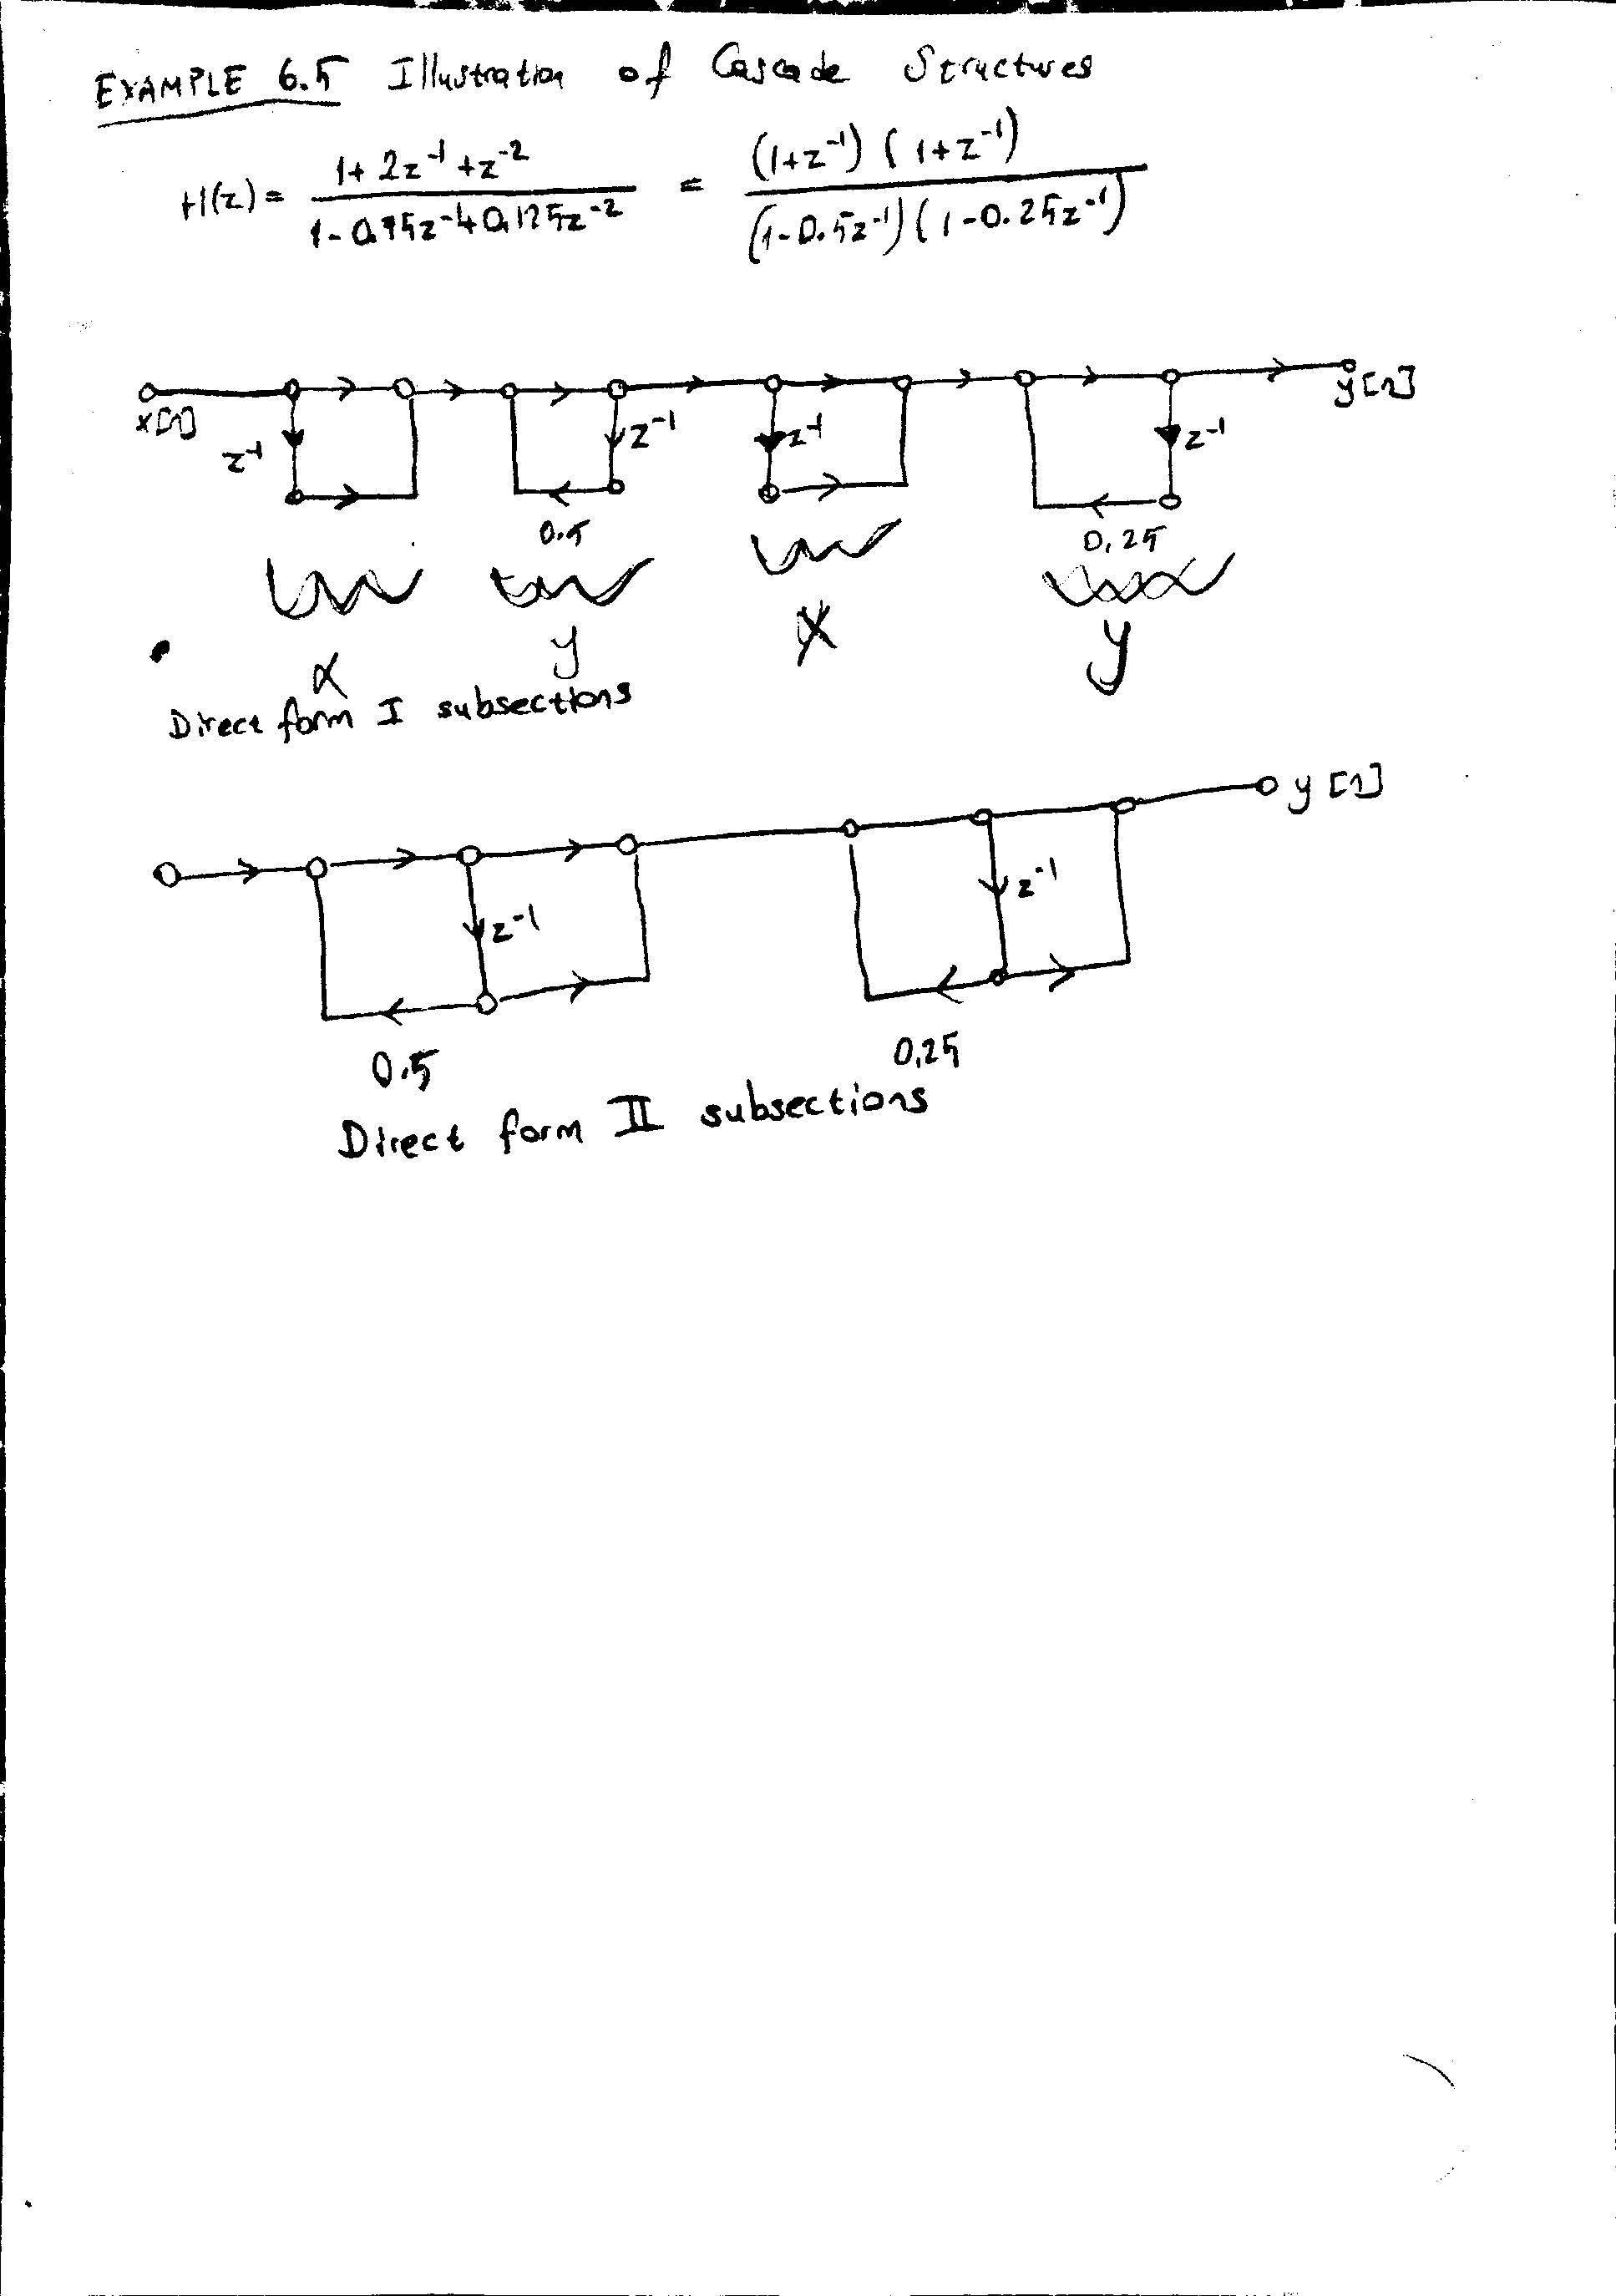 EXAMPLE 6.5 Illustration of Cascade Structures
H(z) = (1 + 2z⁻¹ + z⁻²) / (1 - 0,75z⁻¹ + 0,125z⁻²) = (1+z⁻¹) (1+z⁻¹) / (1-0.5z⁻¹) (1-0.25z⁻¹)
x[n] y[n]
z⁻¹ z⁻¹ z⁻¹ z⁻¹
0.5 0,25
x y x y
Direct form I subsections
y[n]
z⁻¹ z⁻¹
0.5 0,25
Direct form II subsections